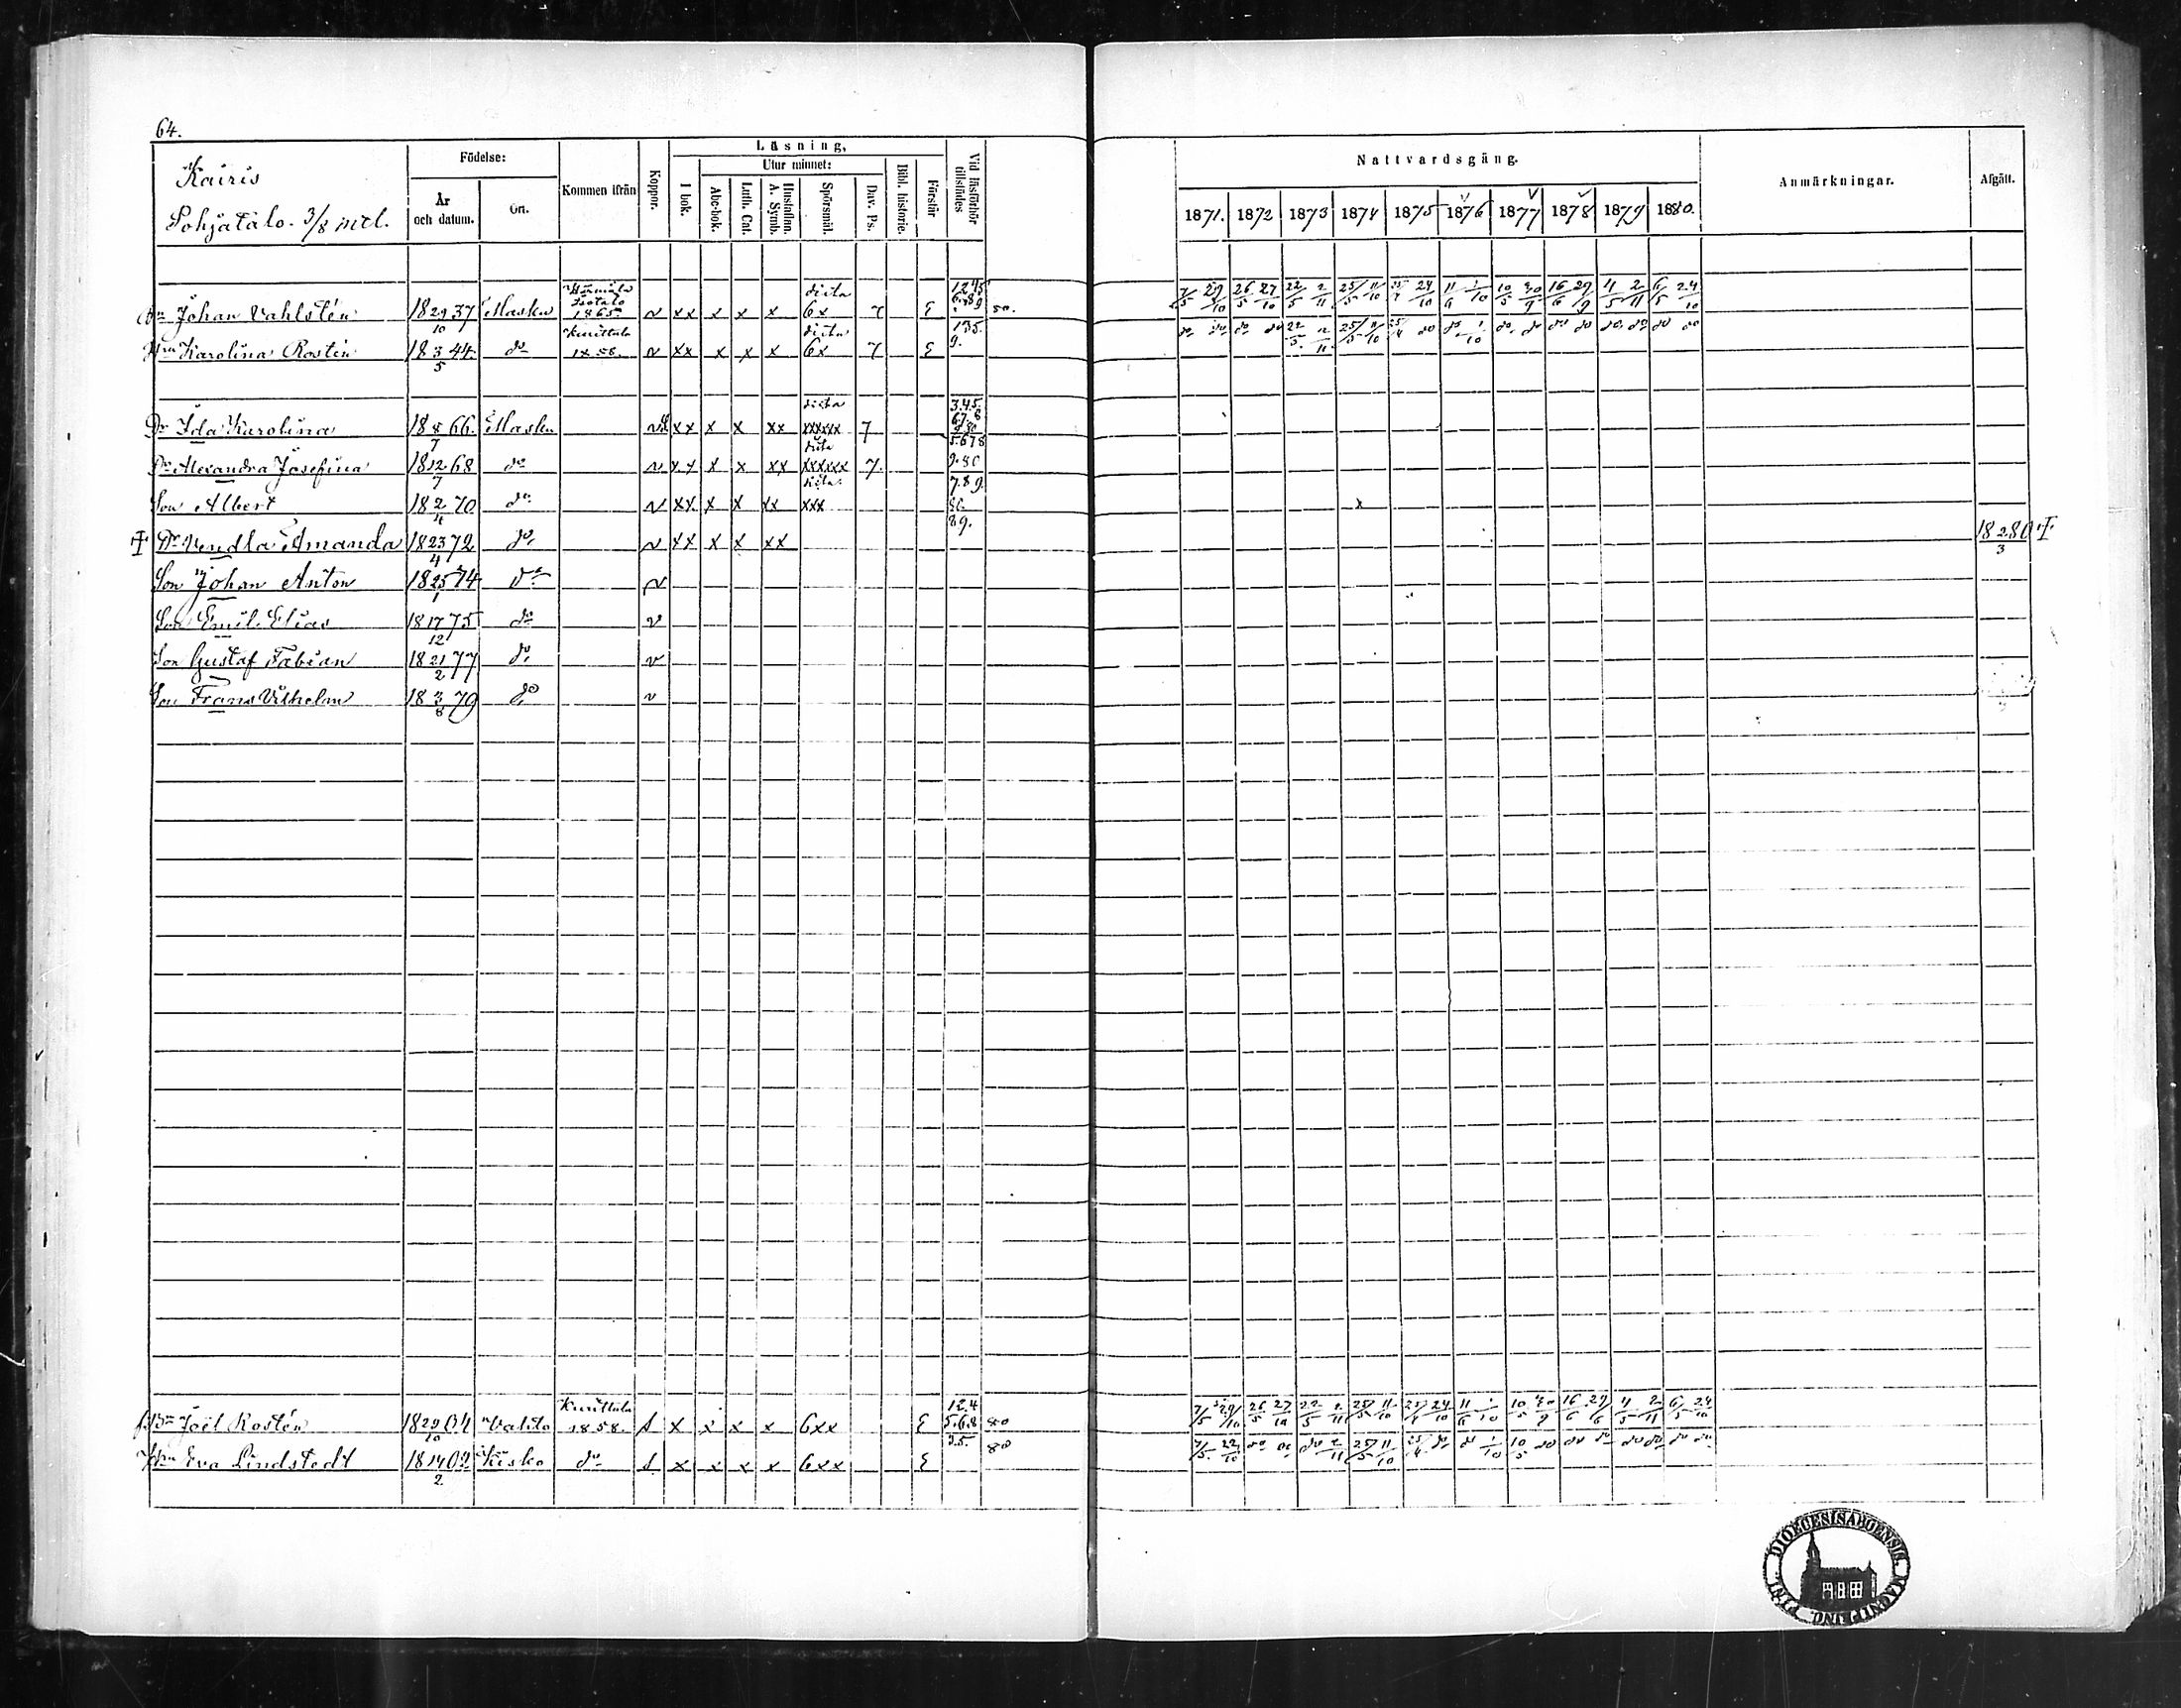 64.
Kairis
Pohjatalo. 3/8 mtl.
Födelse:
År och datum.
Ort.
Kommen ifrån
Koppor.
Läsning,
I bok.
Utur minnet:
Abc-bok.
Luth. Cat.
Hustaflan. A. Symb.
Spörsmål.
Dav. Ps.
Bibl. historie.
Förstår
Vid läsförhör tillstädes
Nattvardsgång.
1871. 1872 1873 1874 1875 1876 1877 1878 1879 1880.
Anmärkningar.
Afgått.
Johan Vahlstén 18 29/10 37 Masku 1865 v xx x x x 6x 7 E 80.
7/5 29/10 26/5 27/10 22/5 2/11 25/5 11/10 24/10 11/6 1/10 10/5 30/9 16/6 29/9 4/5 2/11 6/5 24/10
Hru Karolina Rostén 18 3/5 44 do Knuttila 1858. v xx x x x 6x 7 E
do do do do 22/5 2/11 25/5 11/10 25/4 do do 1/10 do do do do do do do do
Dr Ida Karolina 18 8/7 66. Masku v xx x x xx xxxxx 7
Dr Alexandra Josefina 18 12/7 68 do v xx x x xx xxxxxx 7. 9.80
Son Albert 18 2/4 70 do v xx x x xx xxx 7.89. 80
Dr Vendla Amanda 18 23/4 72 do v xx x x xx 89. 18 2/3 80
Son Johan Anton 18 25/1 74 do v
Son Emil Elias 18 17/12 75 do v
Son Gustaf Fabian 18 21/2 77 do v
Son Frans Vilhelm 18 3/8 79 do v
Joël Rostén 18 29/10 04 Vahto Knuttila 1858. s x x x x 6xx E 124 5.68 80
7/5 29/10 26/5 27/10 22/5 2/11 25/5 11/10 24/10 11/6 1/10 10/5 30/9 16/6 29/6 4/5 2/11 6/5 24/10
Hru Eva Lindstedt 18 14/2 02 Kisko do s x x x x 6xx E 25. 80
7/5 22/10 do do do 2/11 25/5 11/10 25/4 do do 1/10 10/5 do do do do do do do
DIOECESIS ABOENSIS MAGNI DUC. FINL.